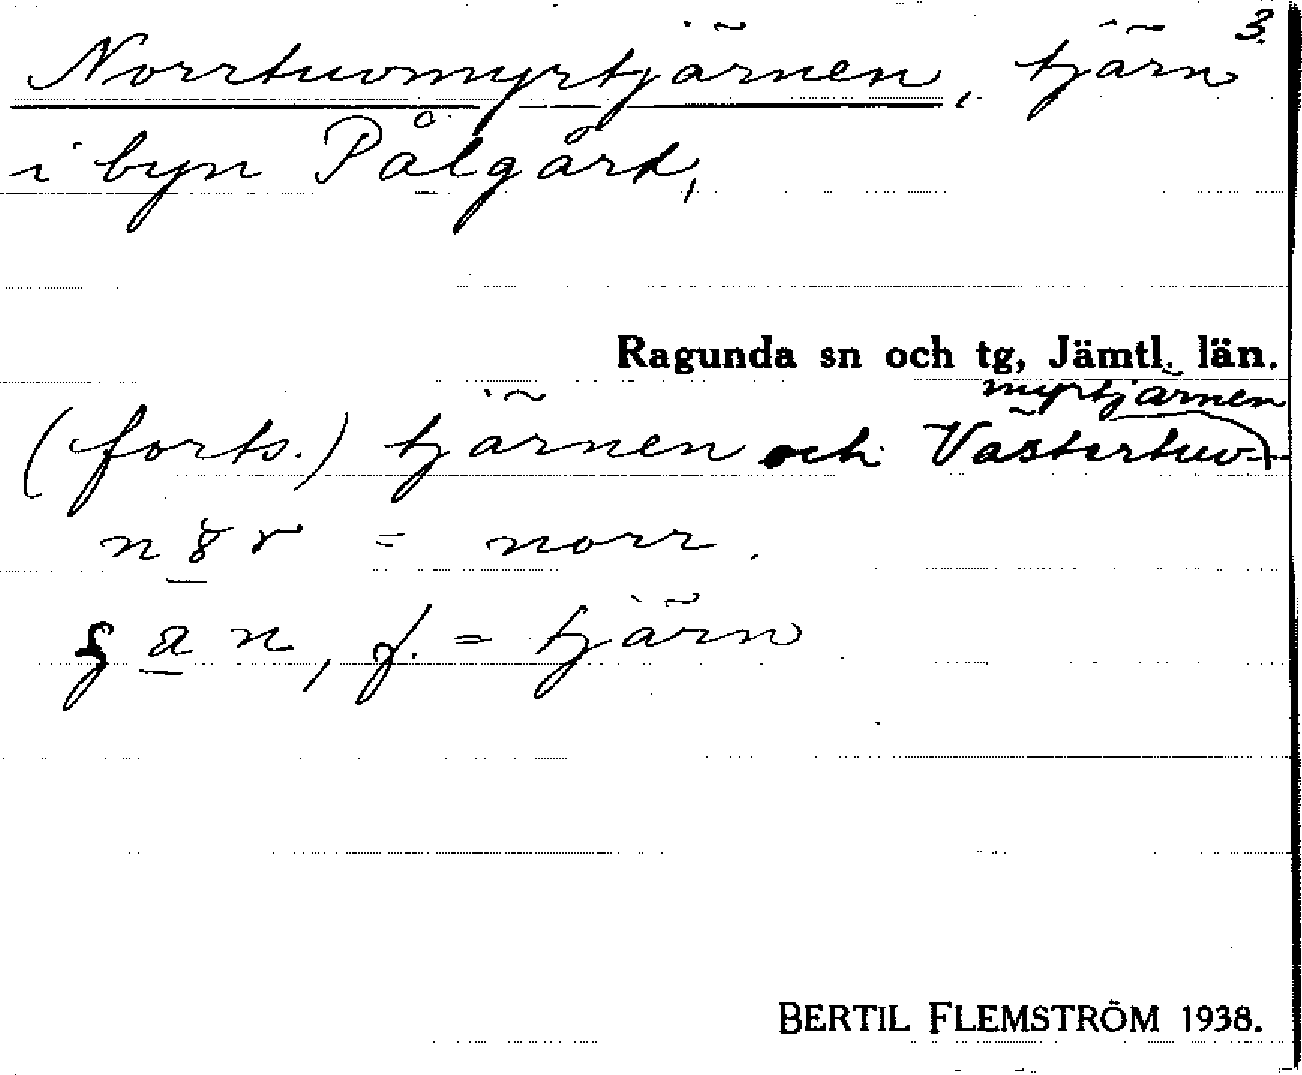 3.
Norrtuvmyrtjärnen, tjärn
i byn Pålgård,
Ragunda sn och tg, Jämtl. län.
(forts.) tjärnen och Västertuv-
myrtjärnen
= norr.
n, f. = tjärn
BERTIL FLEMSTRÖM 1938.